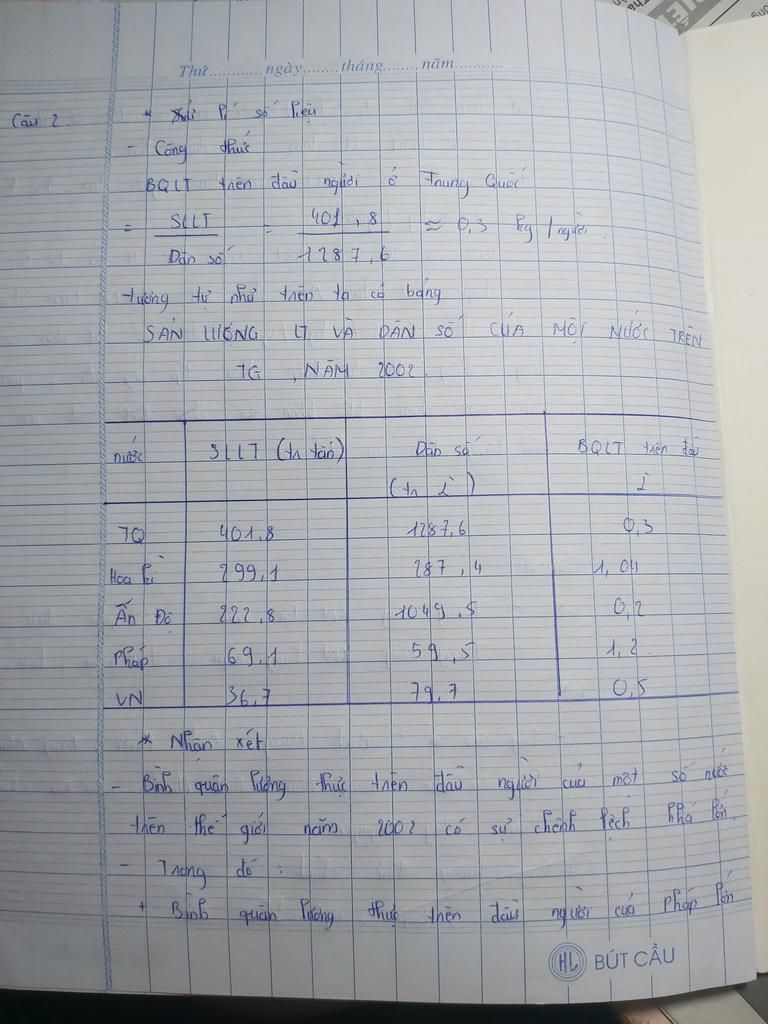 Thứ............ngày........tháng........năm...........
Câu 2.
* Xử lí số liệu
- Công thức
BQLT trên đầu người ở Trung Quốc
= SLLT / Dân số = 401,8 / 1287,6 ≈ 0,3 kg /người.
tương tự như trên ta có bảng
SẢN LƯỢNG LT VÀ DÂN SỐ CỦA MỘT NƯỚC TRÊN
TG, NĂM 2002.
nước SLLT (tr tấn) Dân số (tr ) BQLT trên đầu
TQ 401,8 1287,6 0,3
Hoa kì 299,1 287,4 1,04
Ấn Độ 222,8 1049,5 0,2
Pháp 69,1 59,5 1,2.
VN 36,7 79,7 0,5
* Nhận xét
- Bình quân lương thực trên đầu người của một số nước
trên thế giới năm 2002 có sự chênh lệch khá lớn.
- Trong đó :
+ Bình quân lương thực trên đầu người của Pháp lớn
HL BÚT CẦU